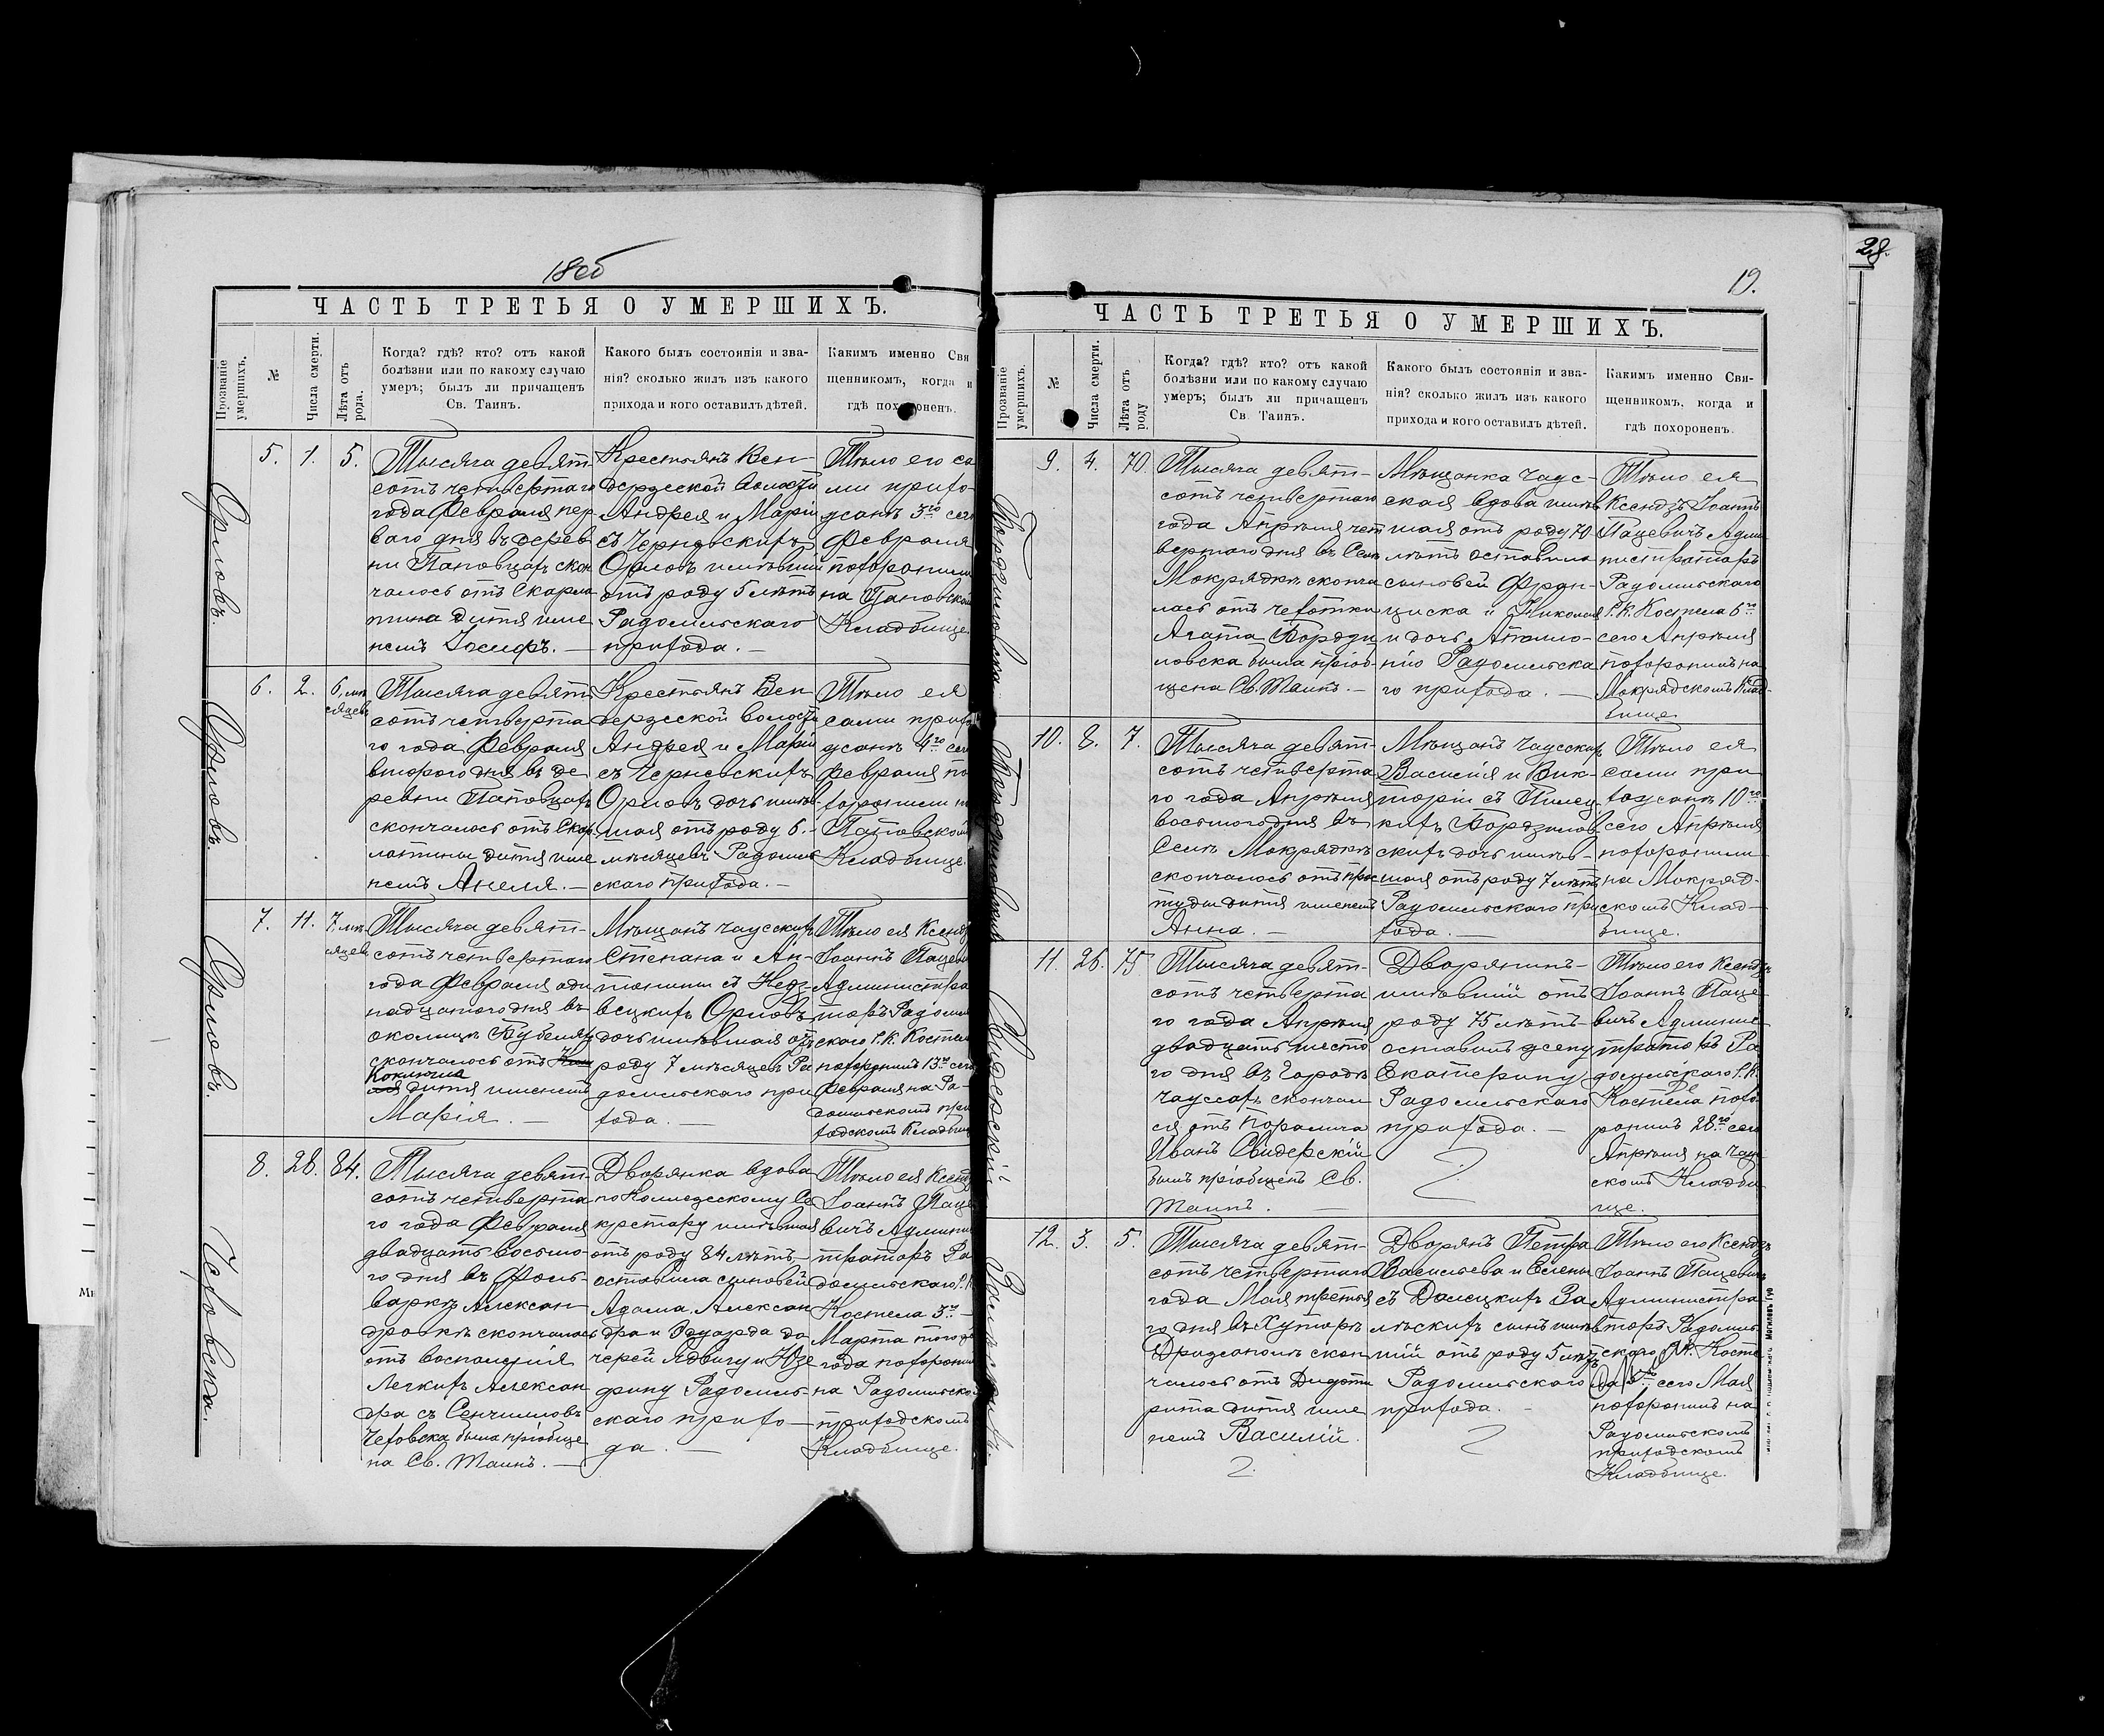 18об
ЧАСТЬ ТРЕТЬЯ О УМЕРШИХЪ.
Прозваніе умершихъ.
№
Числа смерти.
Лѣта отъ рода.
Когда? гдѣ? кто? отъ какой
болѣзни или по какому случаю
умеръ; былъ ли причащенъ
Св. Таинъ.
Какого былъ состоянія и зва-
нія? сколько жилъ изъ какого
прихода и кого оставилъ дѣтей.
Какимъ именно Свя
щенникомъ, когда и
гдѣ похороненъ.
Орловъ.
5.
1.
5.
Тысяча девят-
сотъ четвертаго
года Февраля пер
ваго дня въ дерев
ни Паповцахъ скон
чалось отъ Скарла
тина дитя име
немъ Іосифъ. —
Крестьянъ Вен
дерзеской волости
Андрея и Маріи
съ Черневскихъ
Орловъ имѣвшій
отъ роду 5 лѣтъ
Радомльскаго
прихода. —
Тѣло его са
ми прихо-
жанъ 3го сего
Февраля
похоронили
на Паповской
Кладбище
Орловъ.
6.
2.
6. мѣ
сяцевъ
Тысяча девят
сотъ четверта
го года Февраля
второго дня въ де
ревни Паповцахъ
скончалось отъ Скар
латины дитя име
немъ Анеля. —
Крестьянъ Вен
дерзеской волости
Андрея и Маріи
съ Черневскихъ
Орловъ дочь имѣв-
шая отъ роду 6.-
мѣсяцевъ Радомль
скаго прихода. —
Тѣло ея
сами прихо
жанъ 4го сего
Февраля по
хоронили на
Паповской
Кладбище
Орловъ.
7.
11.
7. мѣ
сяцев
Тысяча девят-
сотъ четвертаго
года Февраля оди
надцатого дня въ
околицѣ
скончалось отъ
Коклюша
дитя именемъ
Марія. —
Мѣщанъ чаусскихъ
Степана и Ан-
тонины съ Недз-
вецкихъ Орловъ
дочь имѣвшая отъ
роду 7 мѣсяцевъ Ра
домльскаго при
хода. —
Тѣло ея Ксендз
Іоаннъ Пацев
Администра
торъ Радомль
скаго Р. К. Костела
похоронилъ 13го сего
Февраля на Ра-
домльскомъ при
ходскомъ Кладбищ
Чеховска.
8.
28.
84.
Тысяча девят-
сотъ четверта
го года Февраля
двадцать восьмо-
го дня въ Фоль-
варкѣ Алексан
дровкѣ скончалась
отъ воспаленія
Легкихъ Алексан
дра съ Сенчиловъ
Чеховска была пріобще
на Св. Таинъ. —
Дворянка вдова
по Коллежскому Се
кретару имѣвшая
отъ роду 84 лѣтъ —
оставила сыновей
Адама, Алексан
дра и Эдуарда до
черей Ядвигу и Юзе
фину Радомль-
скаго прихо-
да. —
Тѣло ея Ксендз
Іоаннъ Паце
вичъ Админис
траторъ Ра
домльскаго Р. К
Костела 3го —
Марта того же
года похоронил
на Радомльско
приходскомъ
Кладбище.
19.
28.
ЧАСТЬ ТРЕТЬЯ О УМЕРШИХЪ.
Прозваніе умершихъ.
№
Числа смерти.
Лѣта отъ роду
Когда? гдѣ? кто? отъ какой
болѣзни или по какому случаю
умеръ; былъ ли причащенъ
Св. Таинъ.
Какого былъ состоянія и зва-
нія? сколько жилъ изъ какого
прихода и кого оставилъ дѣтей.
Какимъ именно Свя-
щенникомъ, когда и
гдѣ похороненъ.
9.
4.
70.
Тысяча девят-
сотъ четвертаго
года Апрѣля чет
вертаго дня въ Селѣ
Мокрядкѣ сконча
лась отъ чахотки
Агата Бордзи
ловска была пріоб-
щена Св. Таинъ. —
Мѣщанка чаус-
ская вдова имѣв
шая отъ роду 70
лѣтъ оставила
сыновей Фран-
циска и Николая
и дочь Аполло-
нію Радомльска
го прихода. —
Тѣло ея
Ксендзъ Іоаннъ
Пацевичъ Адми
нистраторъ
Радомльскаго
Р. К. Костела 6го
сего Апрѣля
похоронилъ на
Мокрядскомъ Клад-
бище
10.
8.
7.
Тысяча девят-
сотъ четверта
го года Апрѣля
восьмого дня въ
Селѣ Мокрядкѣ
скончалось отъ прос
туды дитя именемъ
Анна. —
Мѣщанъ чаусских
Василія и Вик-
торіи съ
Бордзилов
скихъ дочь имѣв-
шая отъ роду 7 лѣтъ
Радомльскаго при
хода. —
Тѣло ея
сами при
хожанъ 10го
сего Апрѣля
похоронили
на Мокряд-
скомъ Клад-
бище.
Свидерскій
11.
26.
75
Тысяча девят-
сотъ четверта
го года Апрѣля
двадцать шесто
го дня въ Городѣ
Чаусахъ скончал
ся отъ Паралича
Иванъ Свидерскій
былъ пріобщенъ Св.
Таинъ. —
Дворянинъ-
имѣвшій отъ
роду 75 лѣтъ
оставилъ жену
Екатерину
Радомльскаго
прихода. —
Тѣло его Ксендзъ
Іоаннъ Паце-
вичъ Админис-
траторъ Ра
домльскаго Р. К.
Костела похо
ронилъ 28го сего
Апрѣля на Чау
скомъ Кладби
ще.
12.
3.
5.
Тысяча девят-
сотъ четвертаго
года Мая третья
го дня въ Хуторѣ
скон
чалось отъ Дифте
рита дитя име
немъ Василій.
Дворянъ Петра
Васильева и Елены
съ Далецкихъ За
лѣскихъ сынъ имѣв
шій отъ роду 5 лѣтъ
Радомльского
прихода. -
Тѣло его Ксендзъ
Іоаннъ Пацевичъ
Администра-
торъ Радомль-
скаго Р. К. Косте
ла сего Мая
похоронилъ на
Радомльскомъ
приходскомъ
Кладбище.